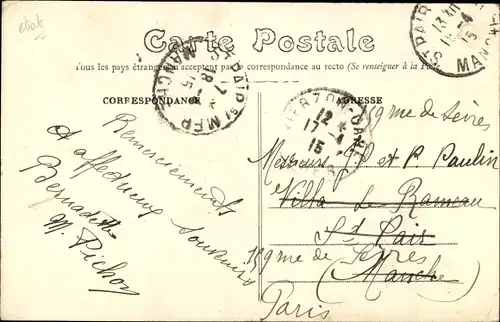 etat
Carte Postale
Tous les pays étrangers n'acceptent pas la correspondance au recto (Se renseigner à la Poste)
CORRESPONDANCE
ADRESSE
ST PAIR S MER
8
7
15
MANCHE
ST PAIR
13
4
15
MANCHE
VIERZON-GARE
12 *
17 - 4
15
CHER
Remerciements
et affectueux souvenirs
Bernadette
M. Pichon
159 rue de Sèvres
Messieurs J. et P. Paulin
Villa Le Rameau
St Pair
159 rue de Sèvres
(Manche)
Paris